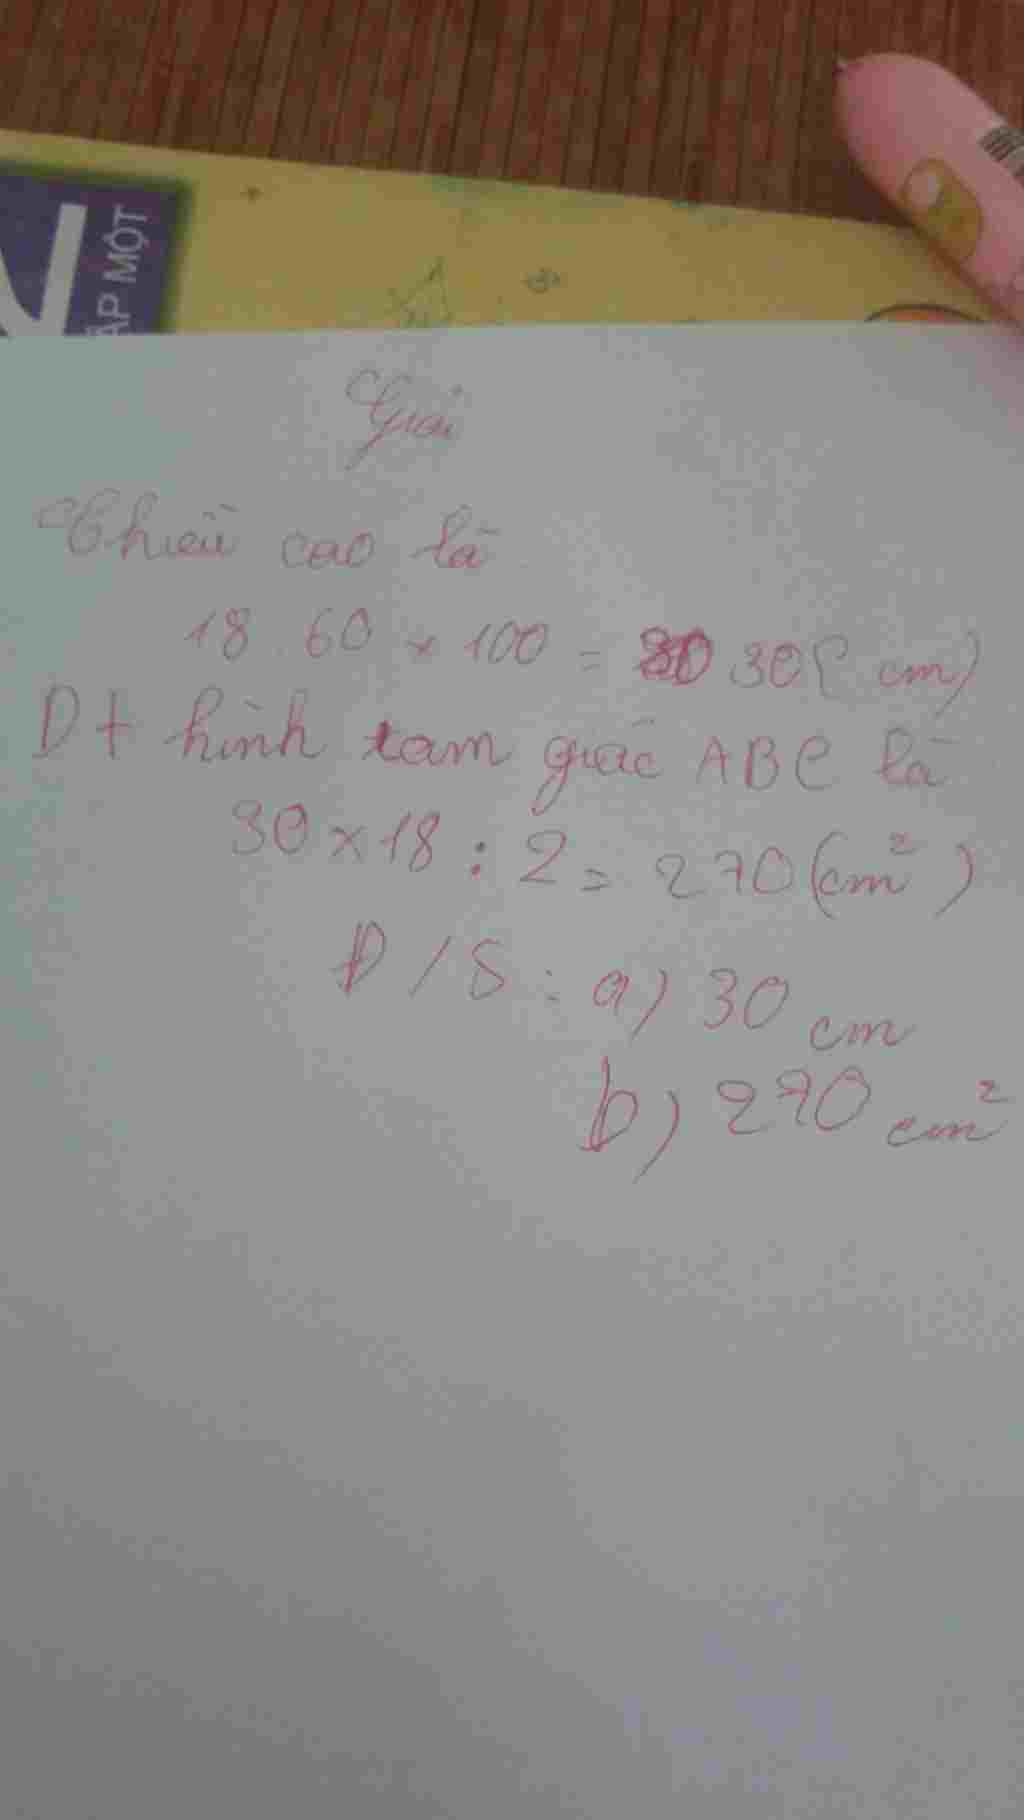 ẬP MỘT
Giải
Chiều cao là
18 60 × 100 = 30 (cm)
DT hình tam giác ABC là
30 × 18 : 2 = 270 (cm²)
Đ/S : a) 30 cm
b) 270 cm²